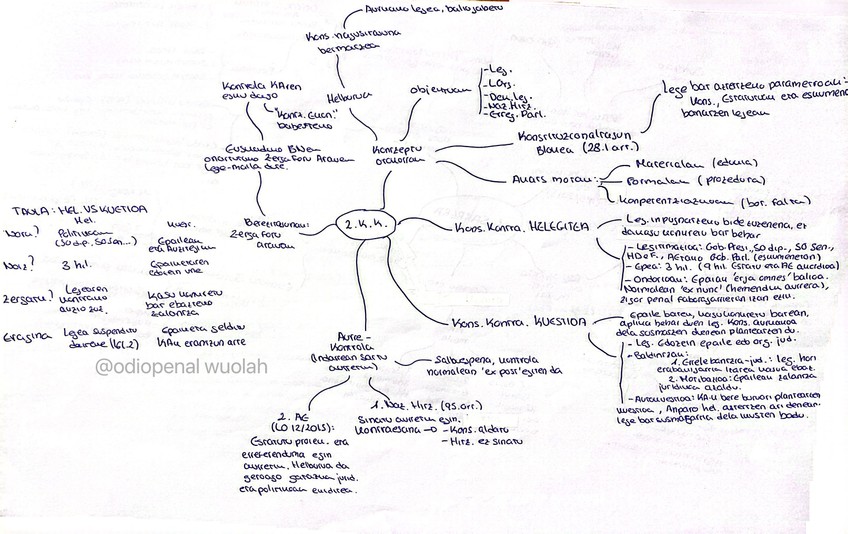 Aurkako legea, baliogabetu
Kons. nagusitasuna
bermatzea
Kontrola KAren
esku dago
"Konts. Guen."
babesteko
Helburua
objektuak
-Leg.
-LOrg.
-Dek. leg.
-Naz. Hitz.
-Erreg. Parl.
Lege bat aztertzeko parametroak:
Kons., Estatutuak eta eskumena
banatzen legeak
Konstituzionaltasun
Blokea (28.1 art.)
Euskadiko BNen
onartutako Zerga Foru Arauek
lege-maila dute.
Kontzeptu
orokorrak
Akats motak:
Materialak (edukia)
Formalak (prozedura)
Konpetentziazkoak (bot. falta)
TAULA: HEL. VS KUESTIOA
Hel.
Kuest.
Nork?
Politikoak
(50 dip, 50 sen...)
Epaileak
eta Auzitegiak
Noiz?
3 hil.
Epaiketaren
edozein une
Zergatik?
Legearen
kontrako
auzio zuz.
Kasu konkretu
bat ebazteko
zalantza
Eragina
Legea suspenditu
daiteke (161.2)
Epaiketa gelditu
KAk erantzun arte
Berezitasunak:
Zerga foru
Arauak
2. K.K.
Kons. Kontra. HELEGITEA
Leg. inpugnatzeko bide zuzenena, ez
du kasu konkretu bat behar
- Legitimazioa: Gob. Pres., 50 dip., 50 sen.,
HDeF., AEtako Gob. Parl. (eskumenetan)
- Epea: 3 hil. (9 hil. Estatu eta AE akordioa)
- Ondorioak: Epaiak 'erga omnes' balioa.
Normalean 'ex nunc' (hemendik aurrera),
zigor penal faboragarriena izan ezik.
Kons. Kontra. KUESTIOA
Epaile batek, kasu konkretu batean,
aplikatu behar duen leg. Kons. aurkakoa
dela susmatzen duenean planteatzen du.
- Leg. Edozein epaile edo org. jud.
- Baldintzak:
1. Errelebantzia-jud.: leg. hori
erabakigarria izatea kasua ebaz.
2. Motibazioa: Epaileak zalantza
juridikoa azaldu.
- Autokuestioa: KA-k bere buruari planteatzen
kuestioa, Anparo hel. aztertzen ari denean
lege bat susmagarria dela ikusten badu.
Aurre-
Kontrola
(Indarrean sartu
aurretik)
Salbuespena, kontrola
normalean 'ex post' egiten da
1. Naz. Hitz. (95. art.)
Sinatu aurretik egin.
Kontraesana → - Kons. aldatu
- Hitz. ez sinatu
2. AE
(LO 12/2015):
Estatutu proiek. eta
erreferenduma egin
aurretik. Helburua da
geroago gatazka jurid.
eta politikoak ekiditea.
@odiopenal wuolah